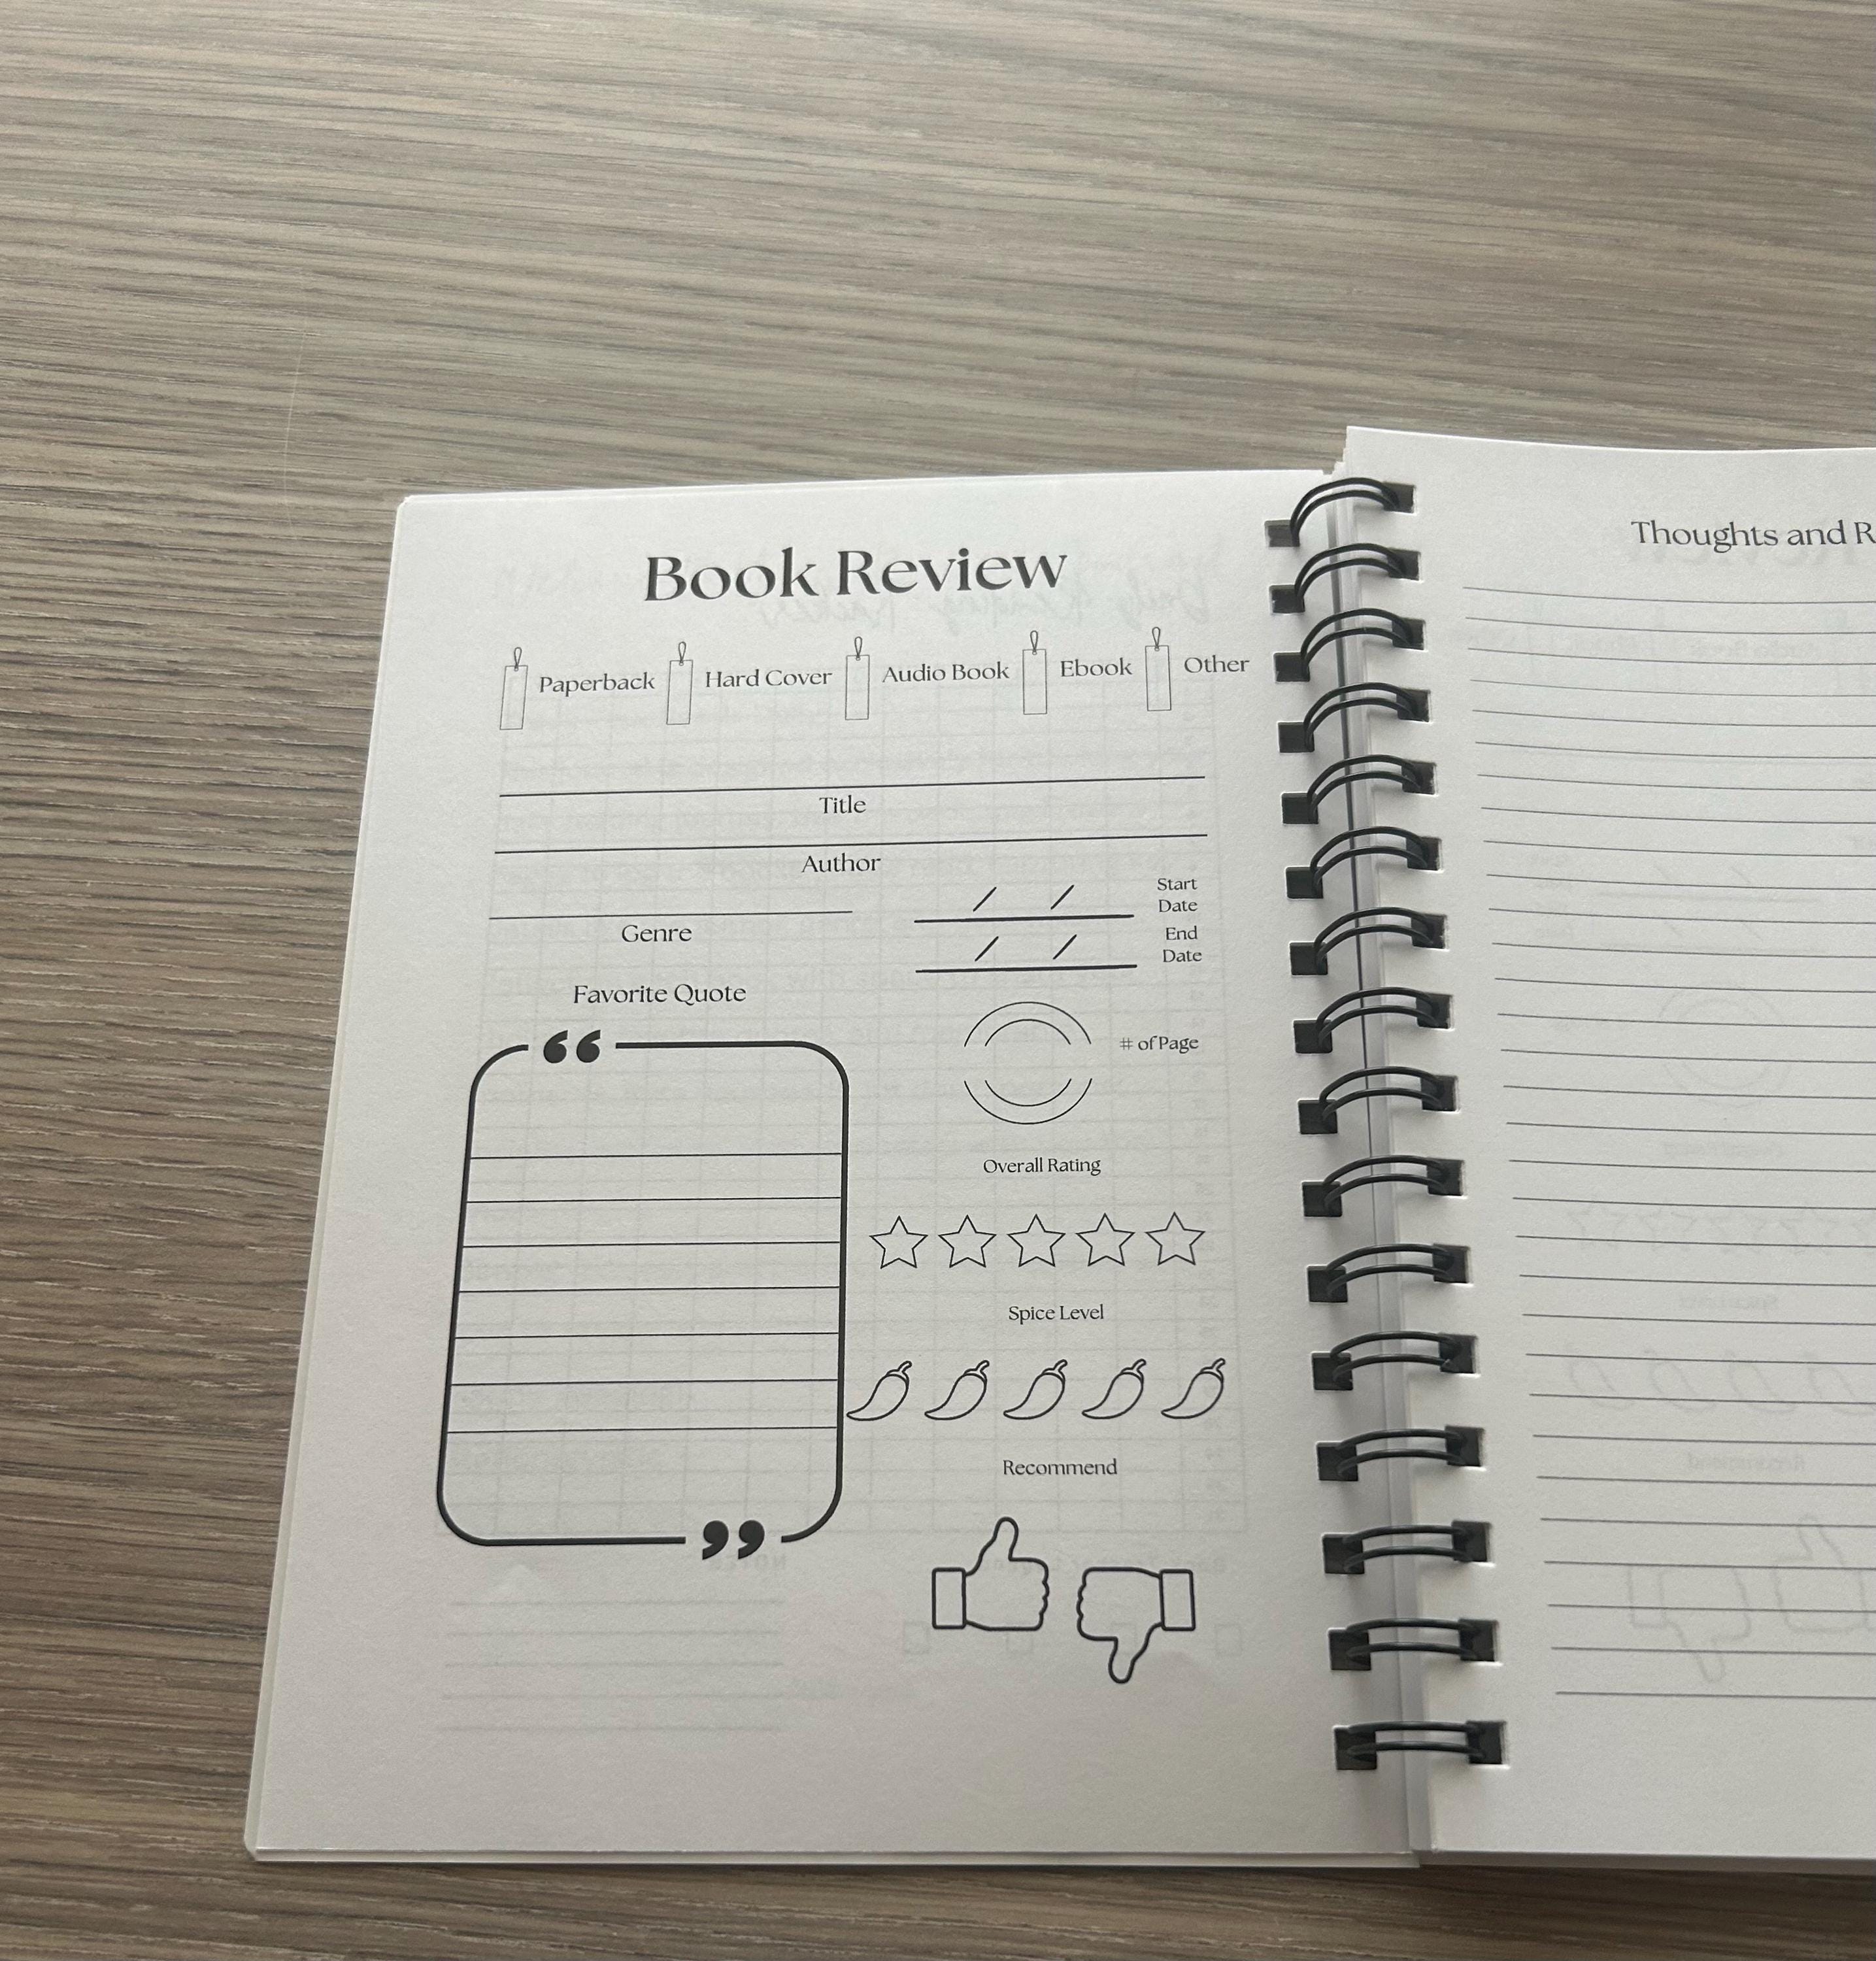 Book Review
Paperback Hard Cover Audio Book Ebook Other
Title
Author
Start
Date
Genre
End
Date
Favorite Quote
“
# of Page
Overall Rating
Spice Level
Recommend
”
Thoughts and R